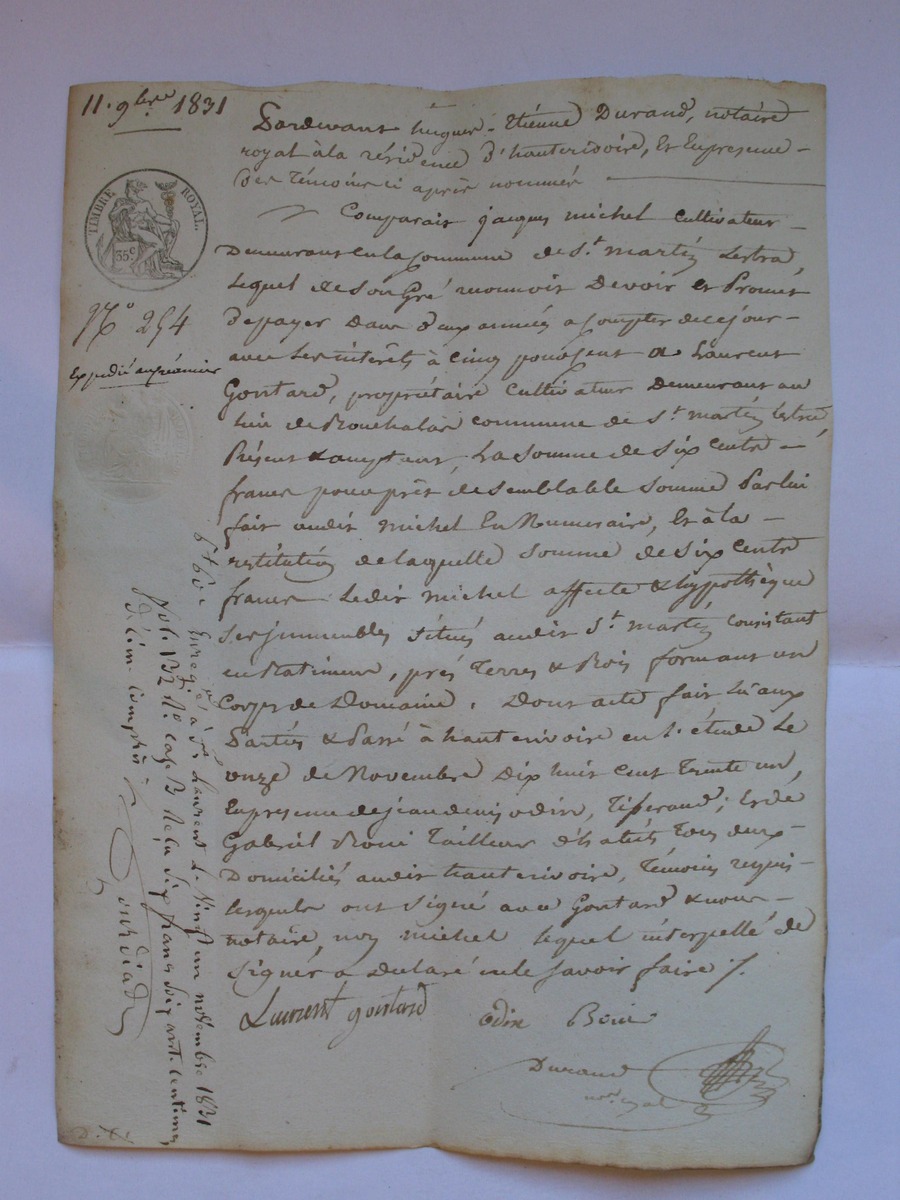 11. 9bre 1831
TIMBRE ROYAL.
35c
No 254
Expédié au créancier
Pardevant hugue-Etienne Durand, notaire
royal à la résidence d'hauterivoire, et En presence
des témoins ci après nommés
Comparait jacques michel Cultivateur
Demeurant en la Commune de St. martin Lestra,
Lequel de son Gré reconnoit Devoir et Promet
de payer Dans deux années a Compter de ce jour
avec les intérêts à Cinq pour cent a Laurent
Gontard, propriétaire Cultivateur Demeurant au
lieu de commune de St. martin Lestra
Présent & acceptant, La Somme de Six Cents
francs pour prêt de Semblable Somme Par lui
fait audit michel En Numeraire, Et à la
restitution de laquelle Somme de Six Cents
francs Ledit michel affecte & hypothèque
Ses jmmeubles Situés audit St. martin Consistant
en Batiment, prés Terres & Bois formant un
Corps de Domaine. Dont acte fait Lu aux
Parties & Passé à hauterivoire en l'étude Le
onze de Novembre Dix huit Cent Trente un,
En presence de jean denis odin, Tisserand, Et de
Gabriel Tailleur d'habits Tous deux
Domiciliés audit hauterivoire, Témoins requis
lesquels ont Signé avec Gontard & nous
notaire, non michel lequel interpellé de
Signer a Declaré ne le Savoir faire ./.
Laurent gontard
odin
Durand
not. royal
Enregé à St Laurent le Vingt un novembre 1831
fol. 132 Ro. Case 2 Reçu Six francs Soixante centimes
décime compris